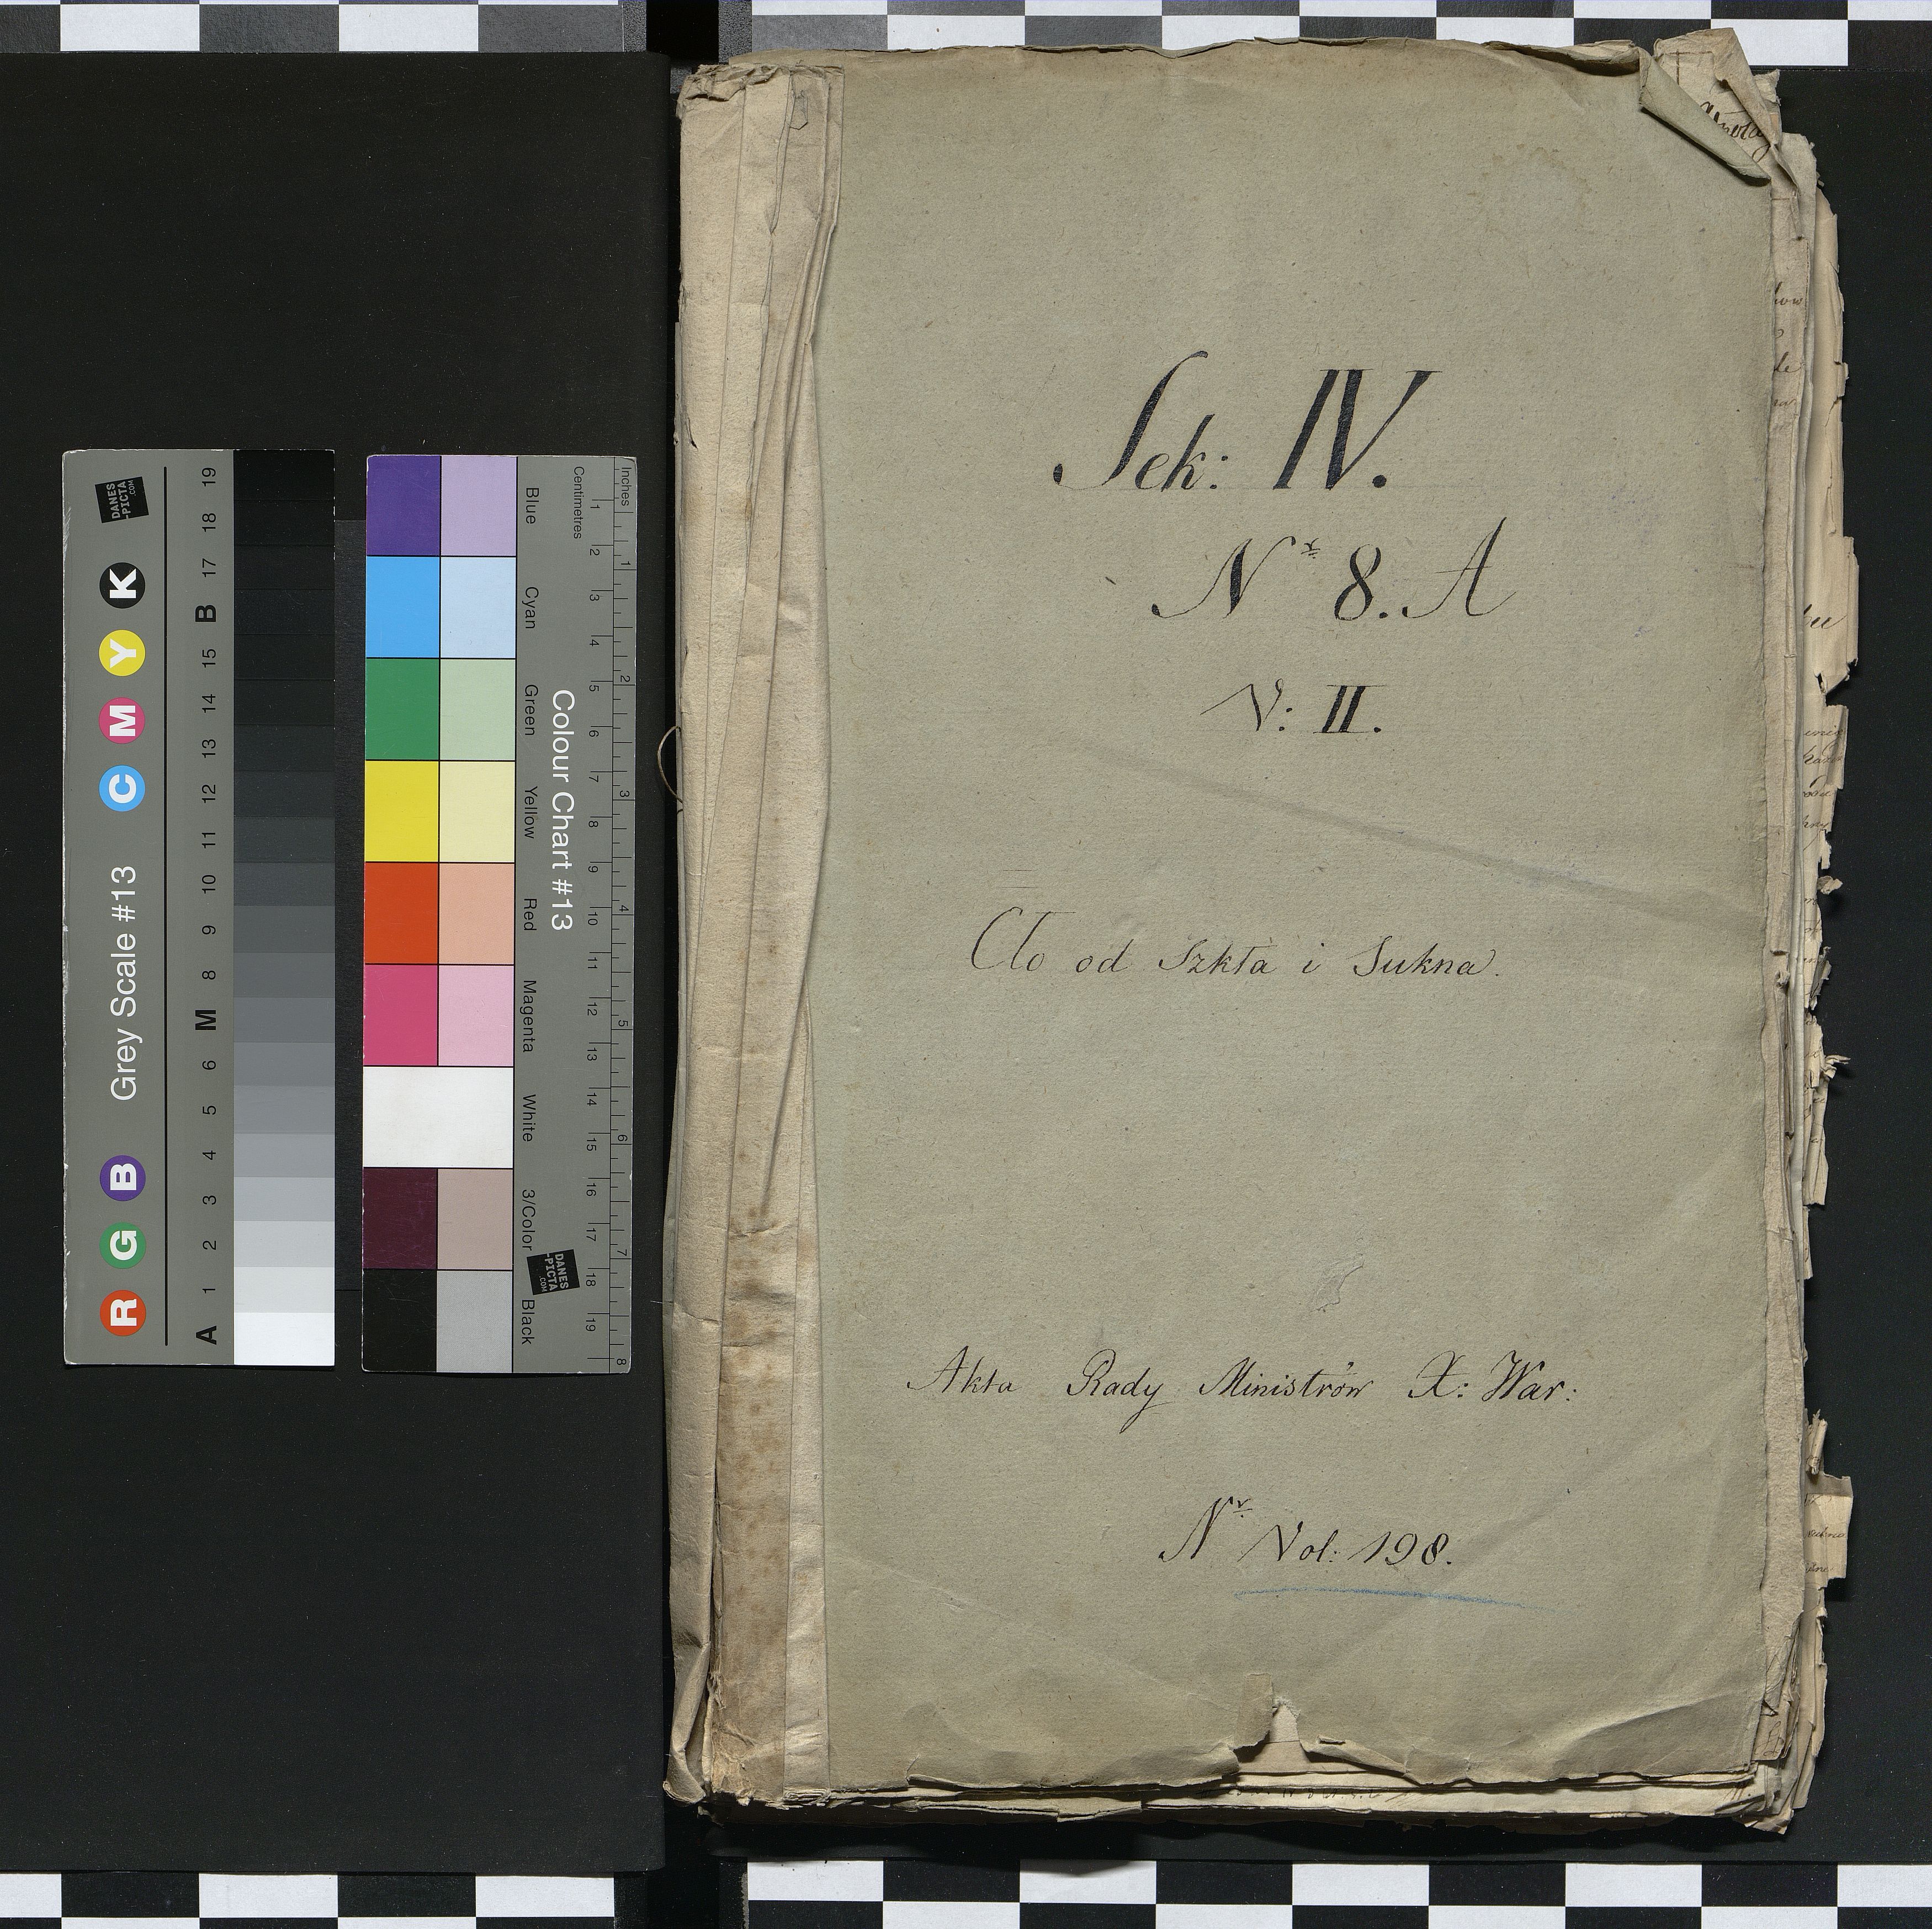 Sek: IV.
Nr 8. A
V: II.
Cło od Szkła i Sukna.
Akta Rady Ministrów X: War:
Nr Vol: 198.
Grey Scale #13
R G B C M Y K
A 1 2 3 4 5 6 M 8 9 10 11 12 13 14 15 B 17 18 19
DANES
-PICTA
.COM
Colour Chart #13
Blue Cyan Green Yellow Red Magenta White 3/Color Black
Centimetres
1 2 3 4 5 6 7 8 9 10 11 12 13 14 15 16 17 18 19
Inches
1 2 3 4 5 6 7 8
DANES
-PICTA
.COM